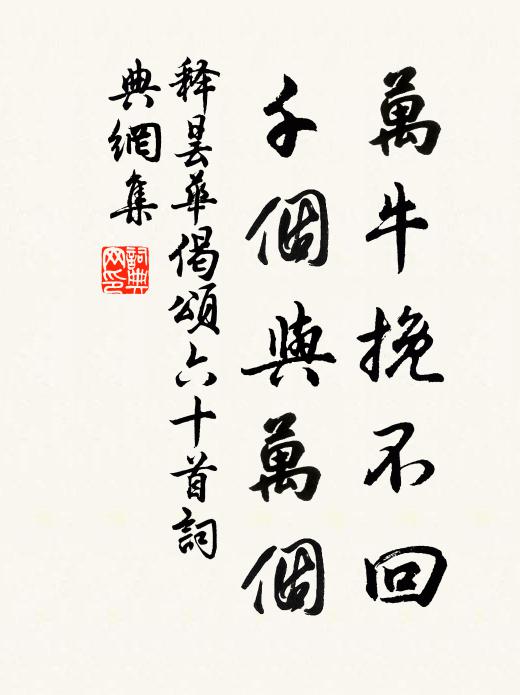 萬牛挽不回
千個與萬個
释曇華偈頌六十首詞
典網集
詞典网印